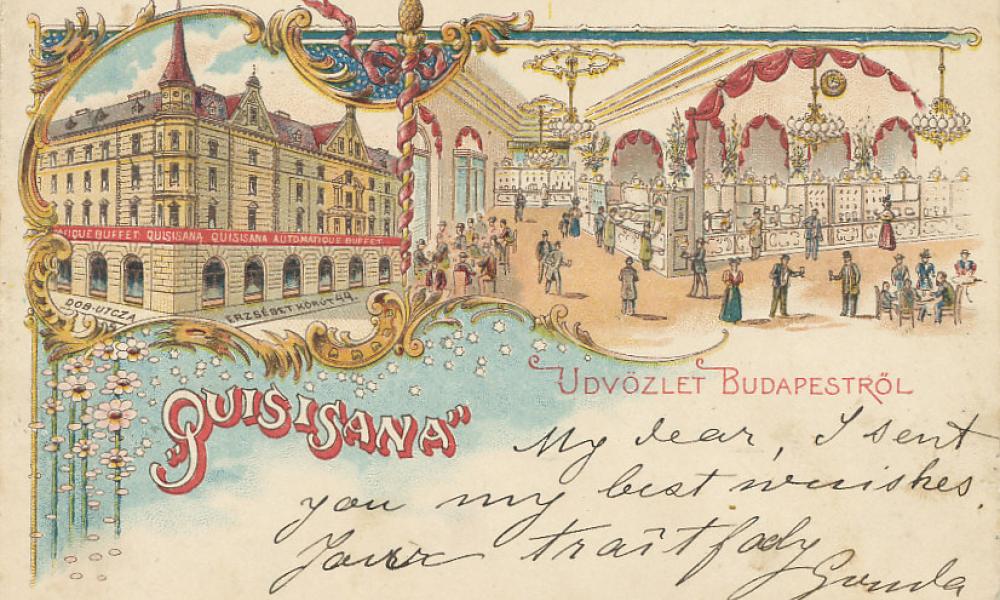 MATIQUE BUFFET QUISISANA QUISISANA AUTOMATIQUE BUFFET
DOB-UTCZA
ERZSÉBET KÖRÚT 49.
ÜDVÖZLET BUDAPESTRŐL
„QUISISANA”
My dear, I sent
you my best wuishes
traitfody